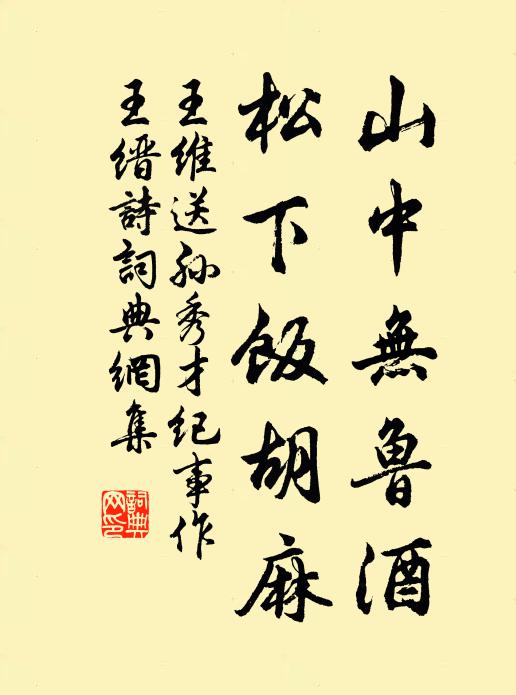 山中無魯酒
松下飯胡麻
王維送孫秀才紀事作
王縉詩詞典網集
詞典
网印